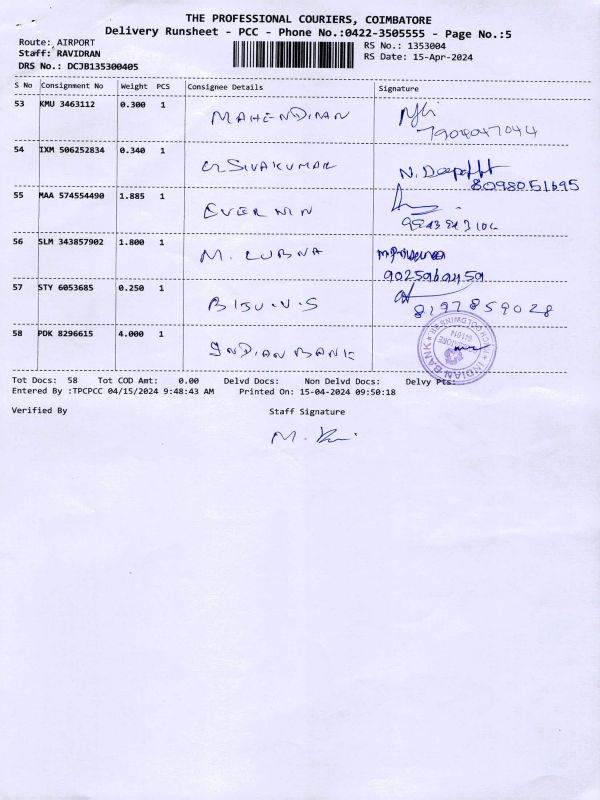 THE PROFESSIONAL COURIERS, COIMBATORE
Delivery Runsheet - PCC - Phone No.:0422-3505555 - Page No.:5
Route: AIRPORT
Staff: RAVIDRAN
DRS No.: DCJB135300405
RS No.: 1353004
RS Date: 15-Apr-2024
S No Consignment No Weight PCS Consignee Details Signature
53 KMU 3463112 0.300 1 MAHENDIRAN
7904047044
54 IXM 506252834 0.340 1 SIVAKUMAR
8098051695
55 MAA 574554490 1.885 1 EVERWIN
56 SLM 343857902 1.800 1 M. LUBNA
9025969459
57 STY 6053685 0.250 1 BIJU.V.S
8197859028
58 PDK 8296615 4.000 1 INDIAN BANK
INDIAN BANK
Tot Docs: 58 Tot COD Amt: 0.00 Delvd Docs: Non Delvd Docs: Delvy Pts:
Entered By :TPCPCC 04/15/2024 9:48:43 AM Printed On: 15-04-2024 09:50:18
Verified By Staff Signature